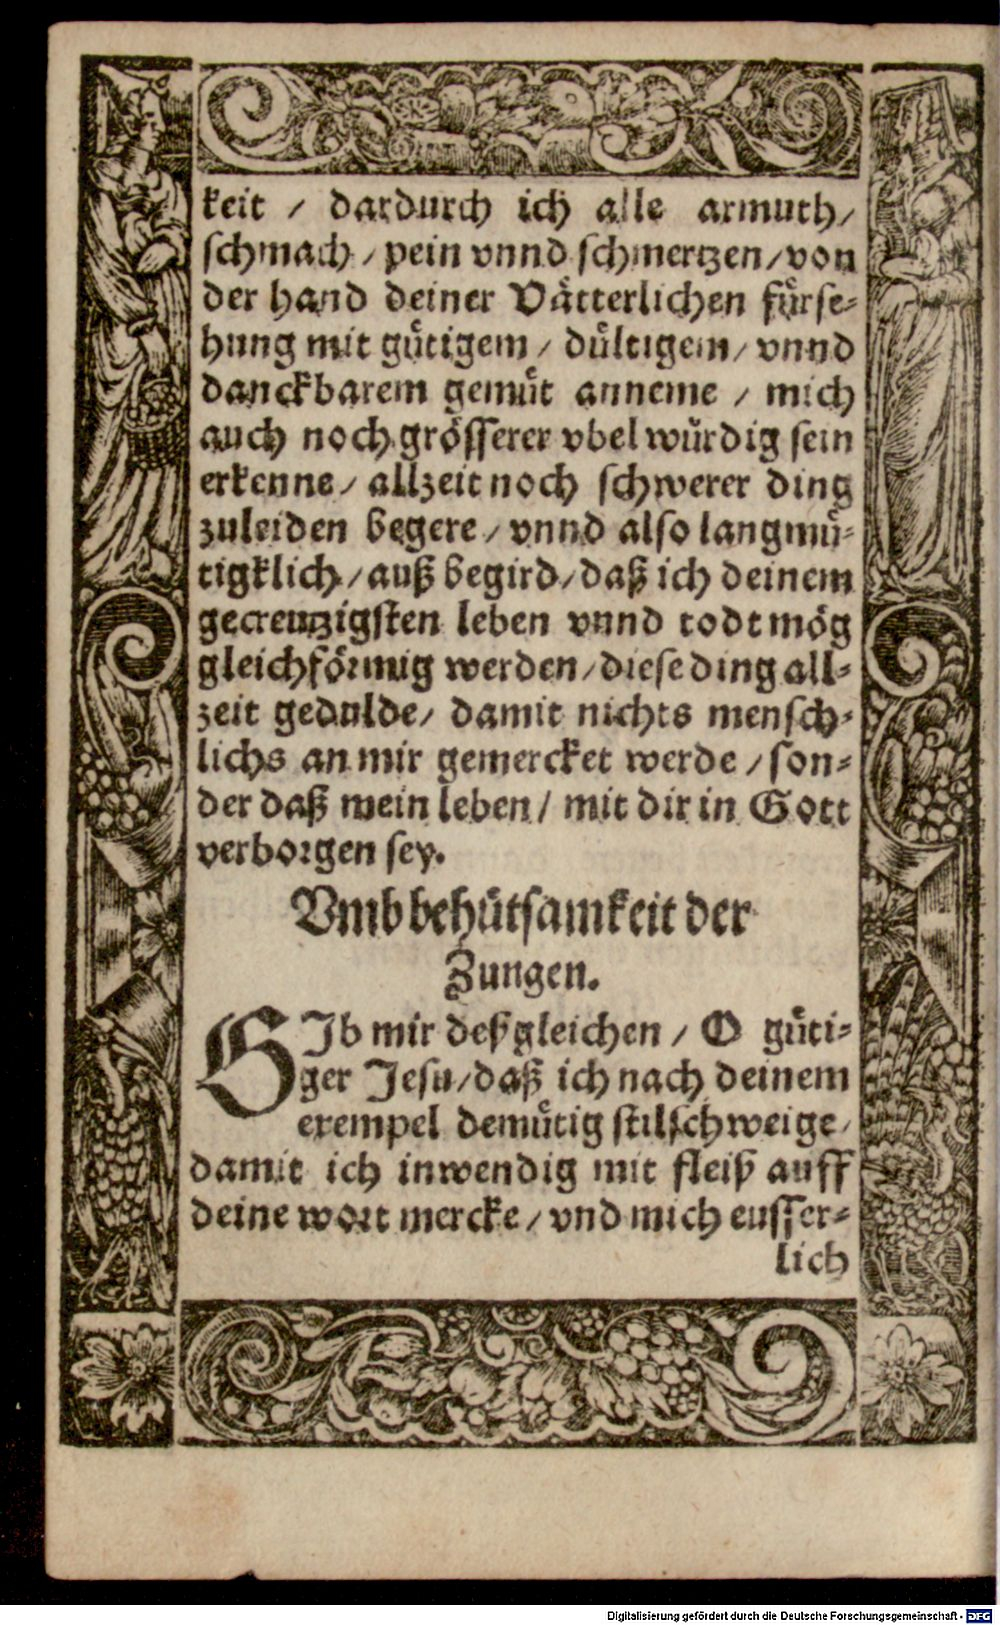 keit / dardurch ich alle armuth/
schmach / pein vnnd schmertzen / von
der hand deiner Vaͤtterlichen fuͤrse⸗
hung mit guͤtigem / duͤltigem / vnnd
danckbarem gemuͤt anneme / mich
auch noch groͤsserer vbel wuͤrdig sein
erkenne / allzeit noch schwerer ding
zuleiden begere / vnnd also langmuͤ⸗
tigklich / auß begird / daß ich deinem
gecreutzigsten leben vnnd todt moͤg
gleichfoͤrmig werden / diese ding all⸗
zeit gedulde / damit nichts mensch⸗
lichs an mir gemercket werde / son⸗
der daß mein leben / mit dir in Gott
verborgen sey.
Vmb behuͤtsamkeit der
Zungen.
GIb mir deßgleichen / O guͤti⸗
ger Jesu / daß ich nach deinem
exempel demuͤtig stilschweige /
damit ich inwendig mit fleiß auff
deine wort mercke / vnd mich eusser⸗
lich
Digitalisierung gefördert durch die Deutsche Forschungsgemeinschaft - DFG